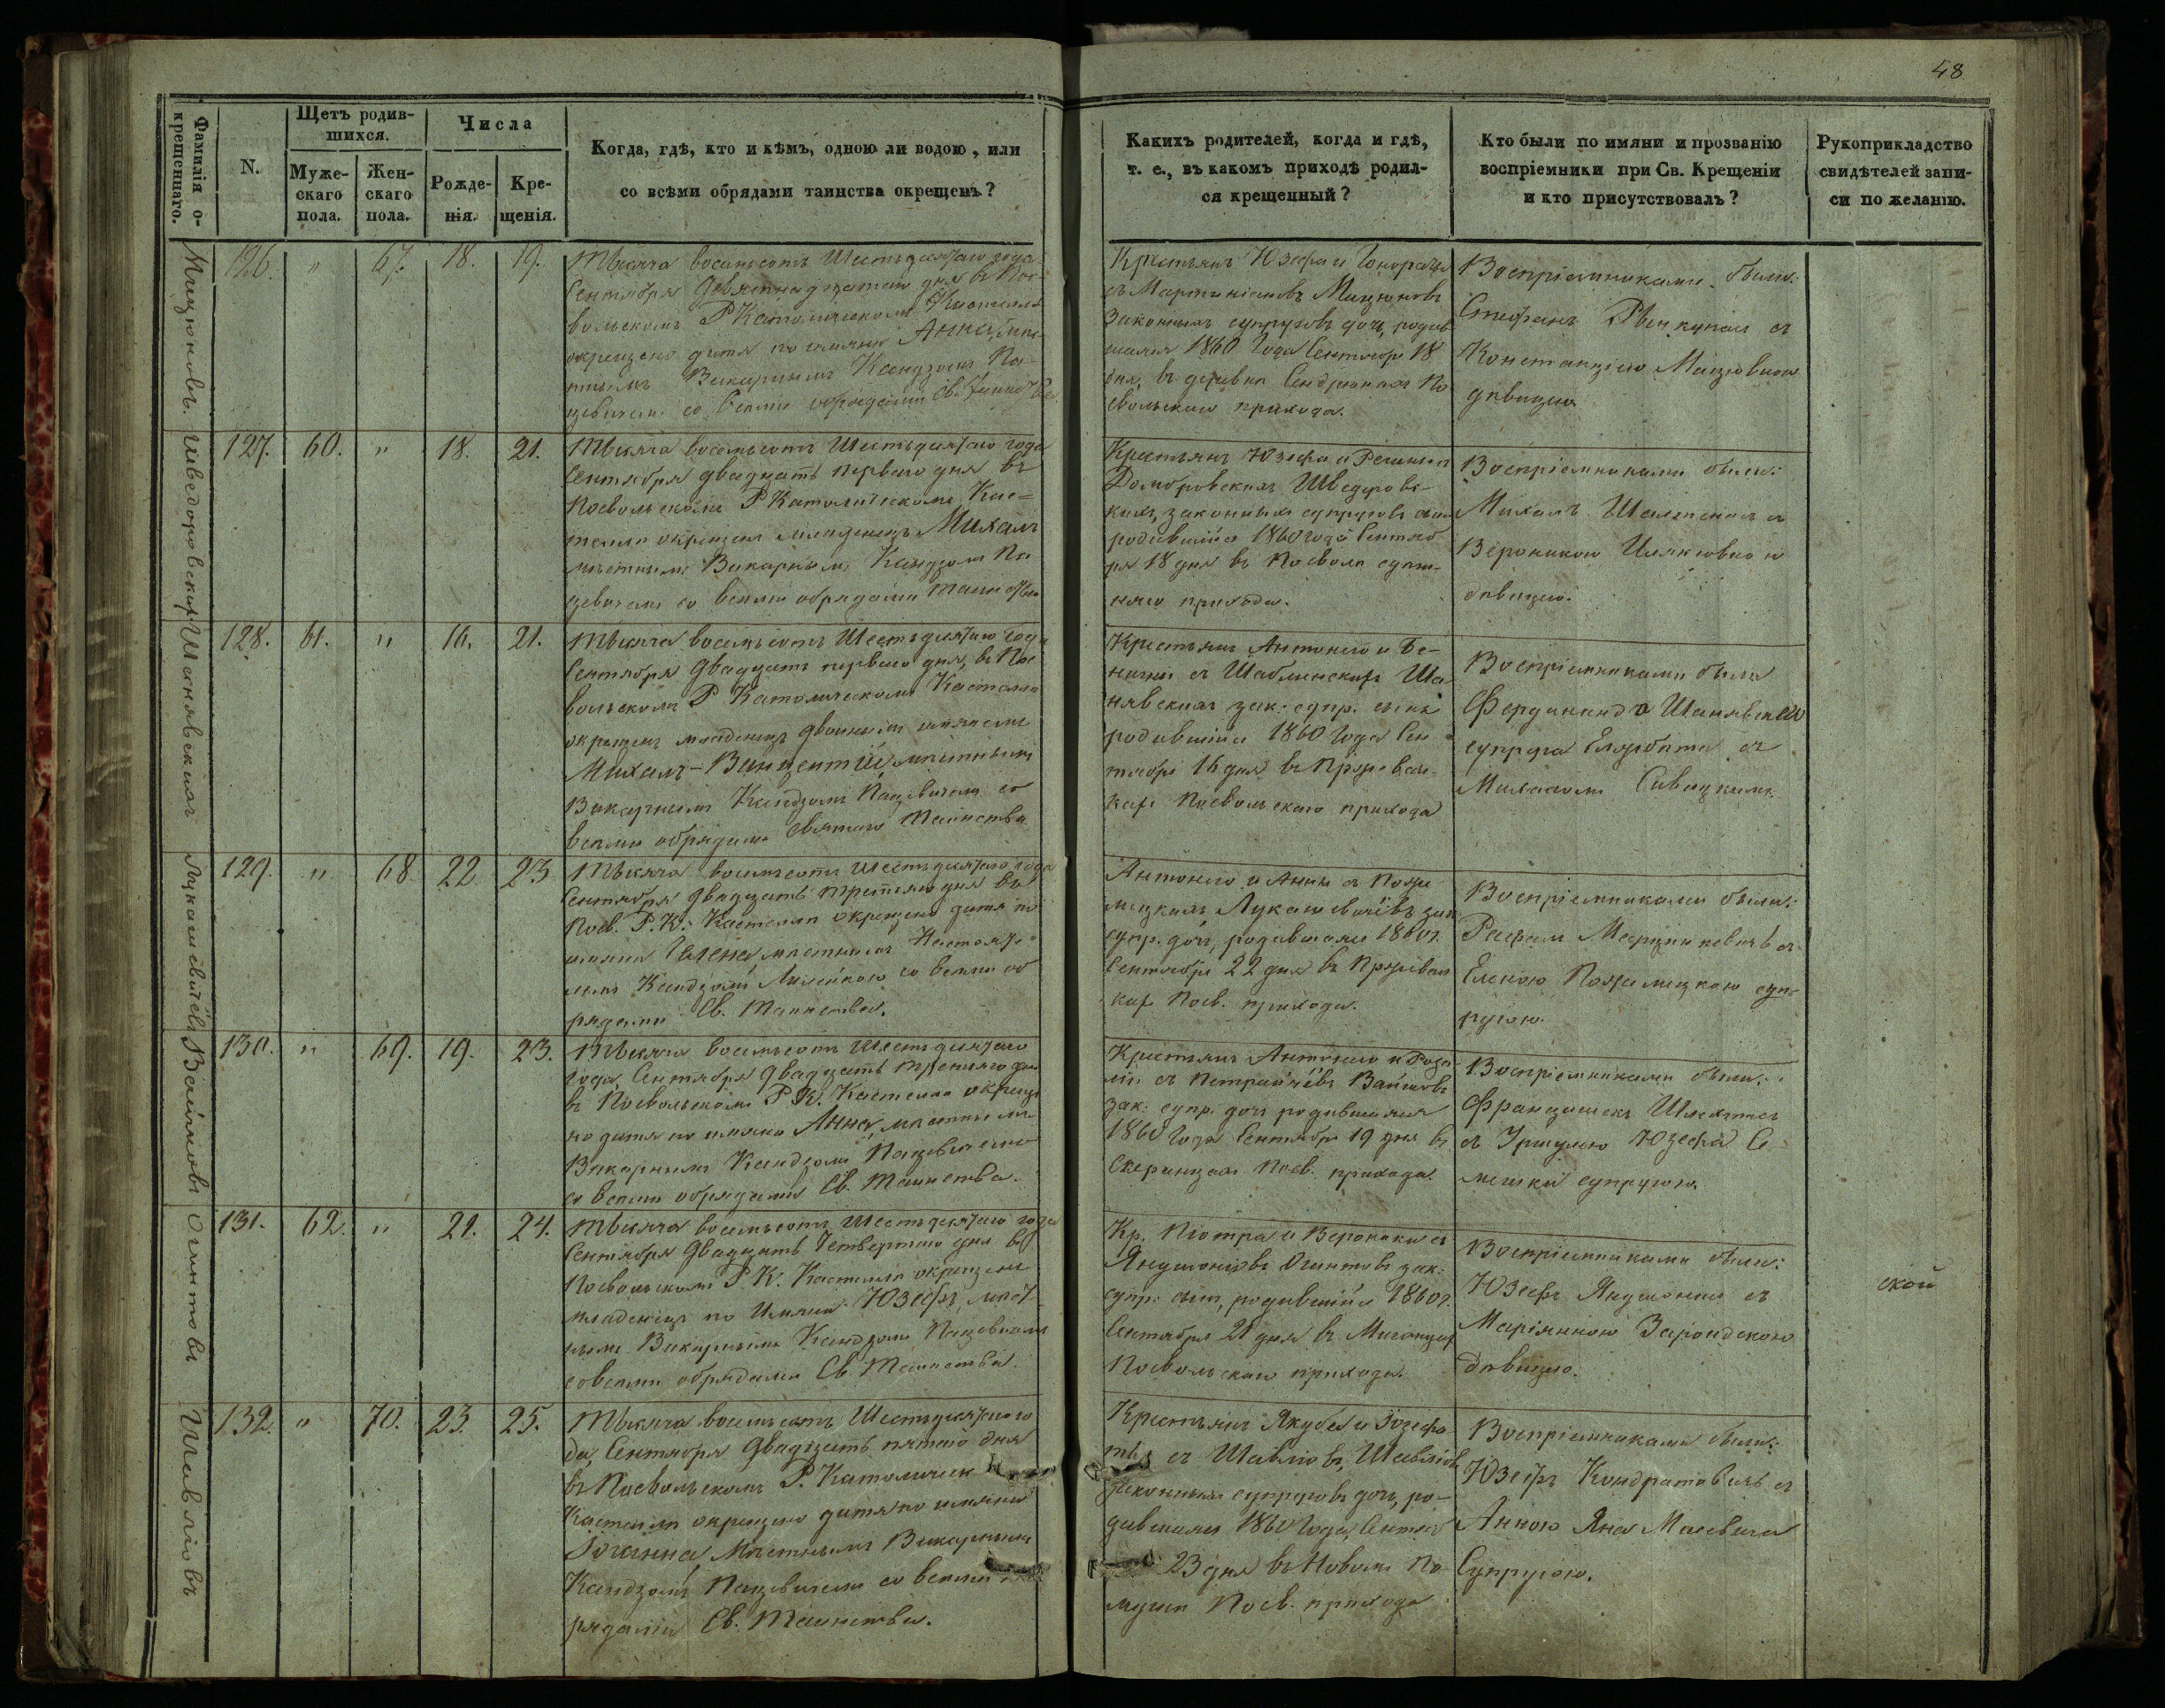 48
Фамилія о-
крещеннаго.
N.
Щетъ родив-
шихся.
Муже-
скаго
пола.
Жен-
скаго
пола.
Числа
Рожде-
нія.
Кре-
щенія.
Когда, гдѣ, кто и кѣмъ, одною ли водою, или
со всѣми обрядами таинства окрещенъ?
Какихъ родителей, когда и гдѣ,
т. е., въ какомъ приходѣ родил-
ся крещенный?
Кто были по имяни и прозванію
воспріемники при Св. Крещеніи
и кто присутствовалъ?
Рукоприкладство
свидѣтелей запи-
си по желанію.
Мицюновъ.
126. " 67. 18. 19.
Тысяча восемьсотъ Шестьдесятаго года
Сентября девятнадцатаго дня въ Пос-
вольскомъ Р Католическомъ Костелѣ
окрещено дитя по имяни Анна,
Викарнымъ Ксендзомъ Па-
цевичемъ со всѣми обрядами Св.
Крестьянъ Юзефа и
съ Мартинковъ Мицюновъ
законныхъ супруговъ дочь, родив-
шаяся 1860 Года Сентября 18
дня, въ деревнѣ По-
свольскаго прихода.
Воспріемниками были:
Стефанъ съ
Констанціею
дѣвицею.
Шведоровскихъ
127. 60. " 18. 21.
Тысяча восемьсотъ Шестьдесятаго года
Сентября двадцать перваго дня въ
Посвольскомъ Р Католическомъ Кос-
телѣ окрещенъ младенецъ Михалъ
мѣстнымъ Викарнымъ Ксендзомъ Па-
цевичемъ со всѣми обрядами
Крестьянъ Юзефа и Регины съ
Домбровскихъ Шведоровс-
кихъ, законныхъ супруговъ сынъ
родившійся 1860 года Сентяб-
ря 18 дня въ Посволѣ
няго прихода.
Воспріемниками были:
Михалъ съ
Вероникою
дѣвицею.
Шанявскихъ
128. 61. " 16. 21.
Тысяча восемьсотъ Шестьдесятаго года
Сентября двадцать перваго дня, въ Пос-
вольскомъ Р Католическомъ Костелѣ
окрещенъ младенецъ двойнымъ имянемъ
Михалъ-Винцентій мѣстнымъ
Викарнымъ Ксендзомъ Пацевичемъ со
всѣми обрядами Святаго Таинства
Крестьянъ Антонего и Бе-
нигны съ Шаблинскихъ Ша-
нявскихъ зак. супр. сынъ
родившійся 1860 Года Сен-
тября 16 дня въ
Посвольскаго прихода
Воспріемниками были
Фердинанда Шанявскаго
супруга Елжбѣта съ
Михаломъ Сивицкимъ.
Лукашевичевъ
129. " 68 22. 23
Тысяча восемьсотъ Шестьдесятаго года
Сентября двадцать третьяго дня въ
Посв. Р. К. Костелѣ окрещено дитя по
имяни Гелена мѣстнымъ Настояте-
лемъ Ксендзомъ со всѣми об-
рядами Св. Таинства.
Антонего и Анны съ
Лукашевичевъ зак.
супр. дочь, родившаяся 1860 г.
Сентября 22 дня въ
Посв. прихода.
Воспріемниками были:
Рафалъ Марцинкевичъ съ
Еленою суп-
ругою.
Войшовъ
130. " 69. 19. 23.
Тысяча восемьсотъ Шестьдесятаго
года, Сентября двадцать третьяго дня
въ Посвольскомъ Р.К. Костелѣ окреще-
но дитя по имяни Анна, мѣстнымъ
Викарнымъ Ксендзомъ Пацевичемъ
со всѣми обрядами Св. Таинства.
Крестьянъ Антонего и Роза-
ліи съ
зак. супр. дочь родившаяся
1860 Года Сентября 19 дня въ
Посв. прихода.
Воспріемниками были:
Францишекъ
съ Уршулею Юзефа
супругою.
Огинтовъ
131. 62. " 21. 24.
Тысяча восемьсотъ Шестьдесятаго года
Сентября двадцать Четвертаго дня въ
Посвольскомъ Р К. Костелѣ окрещенъ
младенецъ по Имяни Юзефъ, мѣст-
нымъ Викарнымъ Ксендзомъ Пацевичемъ
со всѣми обрядами Св. Таинства.
Кр. Піотра и Вероники съ
Огинтовъ зак.
супр. сынъ, родившійся 1860 г.
Сентября 21 дня въ
Посвольскаго прихода.
Воспріемниками были:
Юзефъ съ
Маріянною
дѣвицею.
ской
Шавлювъ
132. " 70. 23. 25.
Тысяча восемьсотъ Шестьдесятаго го-
да, Сентября двадцать пятаго дня
въ Посвольскомъ Р. Католическ
Костелѣ окрещено дитя по имяни
Іоганна, мѣстнымъ Викарнымъ
Ксендзомъ Пацевичемъ со всѣми
рядами Св. Таинства.
Крестьянъ Якуба и Іозефа-
ты съ Шавлювъ, Шавлювъ
законныхъ супруговъ дочь, ро-
дившаяся 1860 Года, Сентяб
23 дня въ Новомъ По-
Посв. прихода
Воспріемниками были:
Юзефъ Кондратовичъ съ
Анною Яна
Супругою.